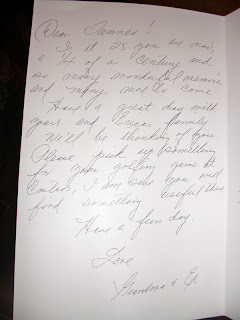 Dear Tannis!
Is it 25 you are now,
a 1/4 of a Century and
so many wonderful memories
and many more to come.
Have a great day with
yours and family.
We'll be thinking of you
Please pick up something
for your golfing game at
I am sure you will
find something useful there
Have a fun day.
Love
Grandma & Ed